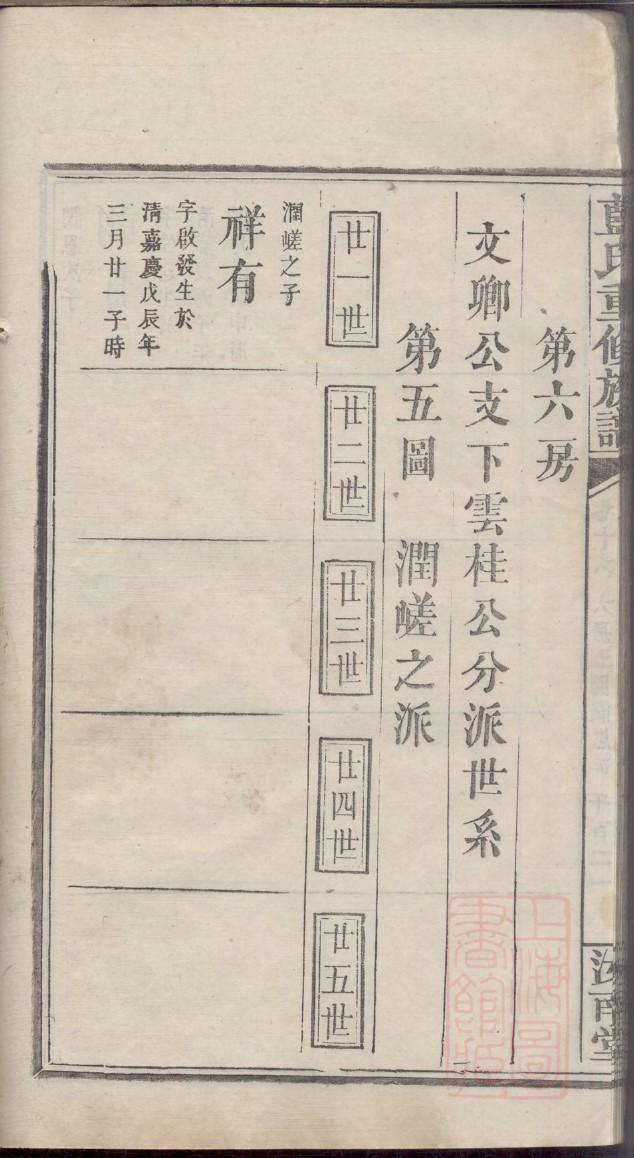 藍氏重修族譜
汝南堂
第六房
文卿公支下雲桂公分派世系
第五圖 潤嵯之派
廿一世
廿二世
廿三世
廿四世
廿五世
潤嵯之子
祥有
字啟發生於
清嘉慶戊辰年
三月廿一子時
上海圖書館藏